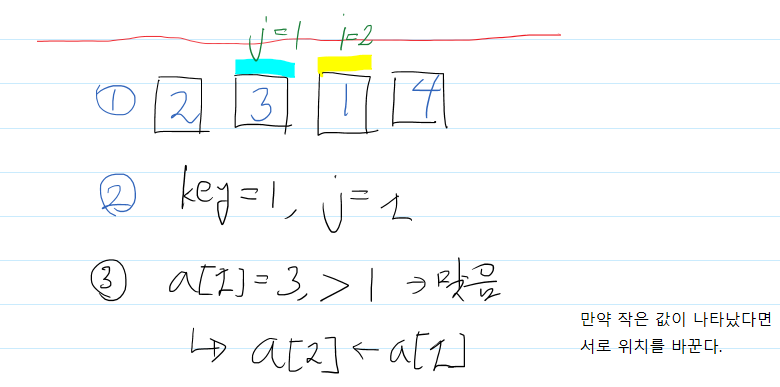 j=1 i=2
① 2 3 1 4
② key=1, j=1
③ a[1]=3, > 1 → 맞음
↳ a[2] ← a[1]
만약 작은 값이 나타났다면
서로 위치를 바꾼다.